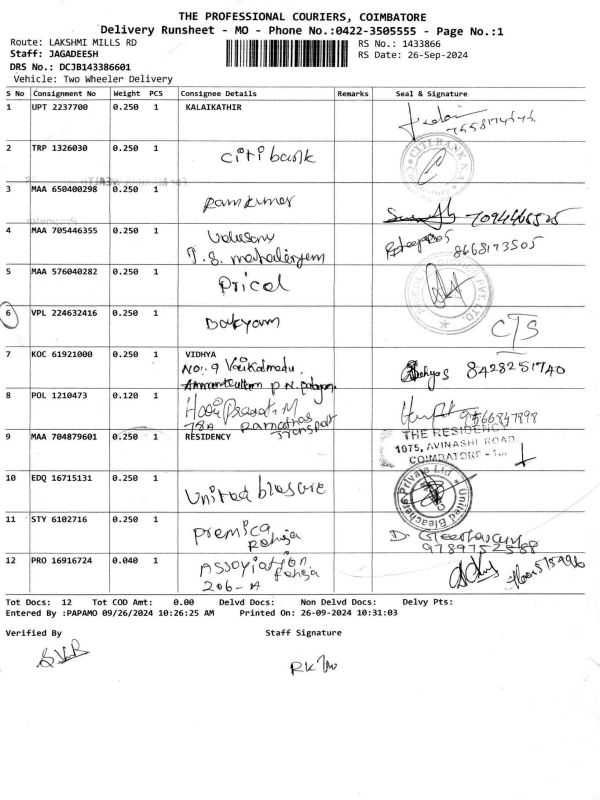 THE PROFESSIONAL COURIERS, COIMBATORE
Delivery Runsheet - MO - Phone No.:0422-3505555 - Page No.:1
Route: LAKSHMI MILLS RD RS No.: 1433866
Staff: JAGADEESH RS Date: 26-Sep-2024
DRS No.: DCJB143386601
Vehicle: Two Wheeler Delivery
S No Consignment No Weight PCS Consignee Details Remarks Seal & Signature
1 UPT 2237700 0.250 1 KALAIKATHIR
2 TRP 1326030 0.250 1 citibank CITIBANK N.A.
3 MAA 650400298 0.250 1 Ramkumar
4 MAA 705446355 0.250 1
8668173505
5 MAA 576040282 0.250 1 Pricol
6 VPL 224632416 0.250 1 Bakyam CTS
7 KOC 61921000 0.250 1 VIDHYA
No:. 9 8428251740
8 POL 1210473 0.120 1
78A Transport 9566847898
9 MAA 704879601 0.250 1 RESIDENCY THE RESIDENCY
1075, AVINASHI ROAD,
COIMBATORE
10 EDQ 16715131 0.250 1 United United Bleachers Private Ltd
11 STY 6102716 0.250 1 Premica
9789752588
12 PRO 16916724 0.040 1 Assoyiation
206-A
Tot Docs: 12 Tot COD Amt: 0.00 Delvd Docs: Non Delvd Docs: Delvy Pts:
Entered By :PAPAMO 09/26/2024 10:26:25 AM Printed On: 26-09-2024 10:31:03
Verified By Staff Signature